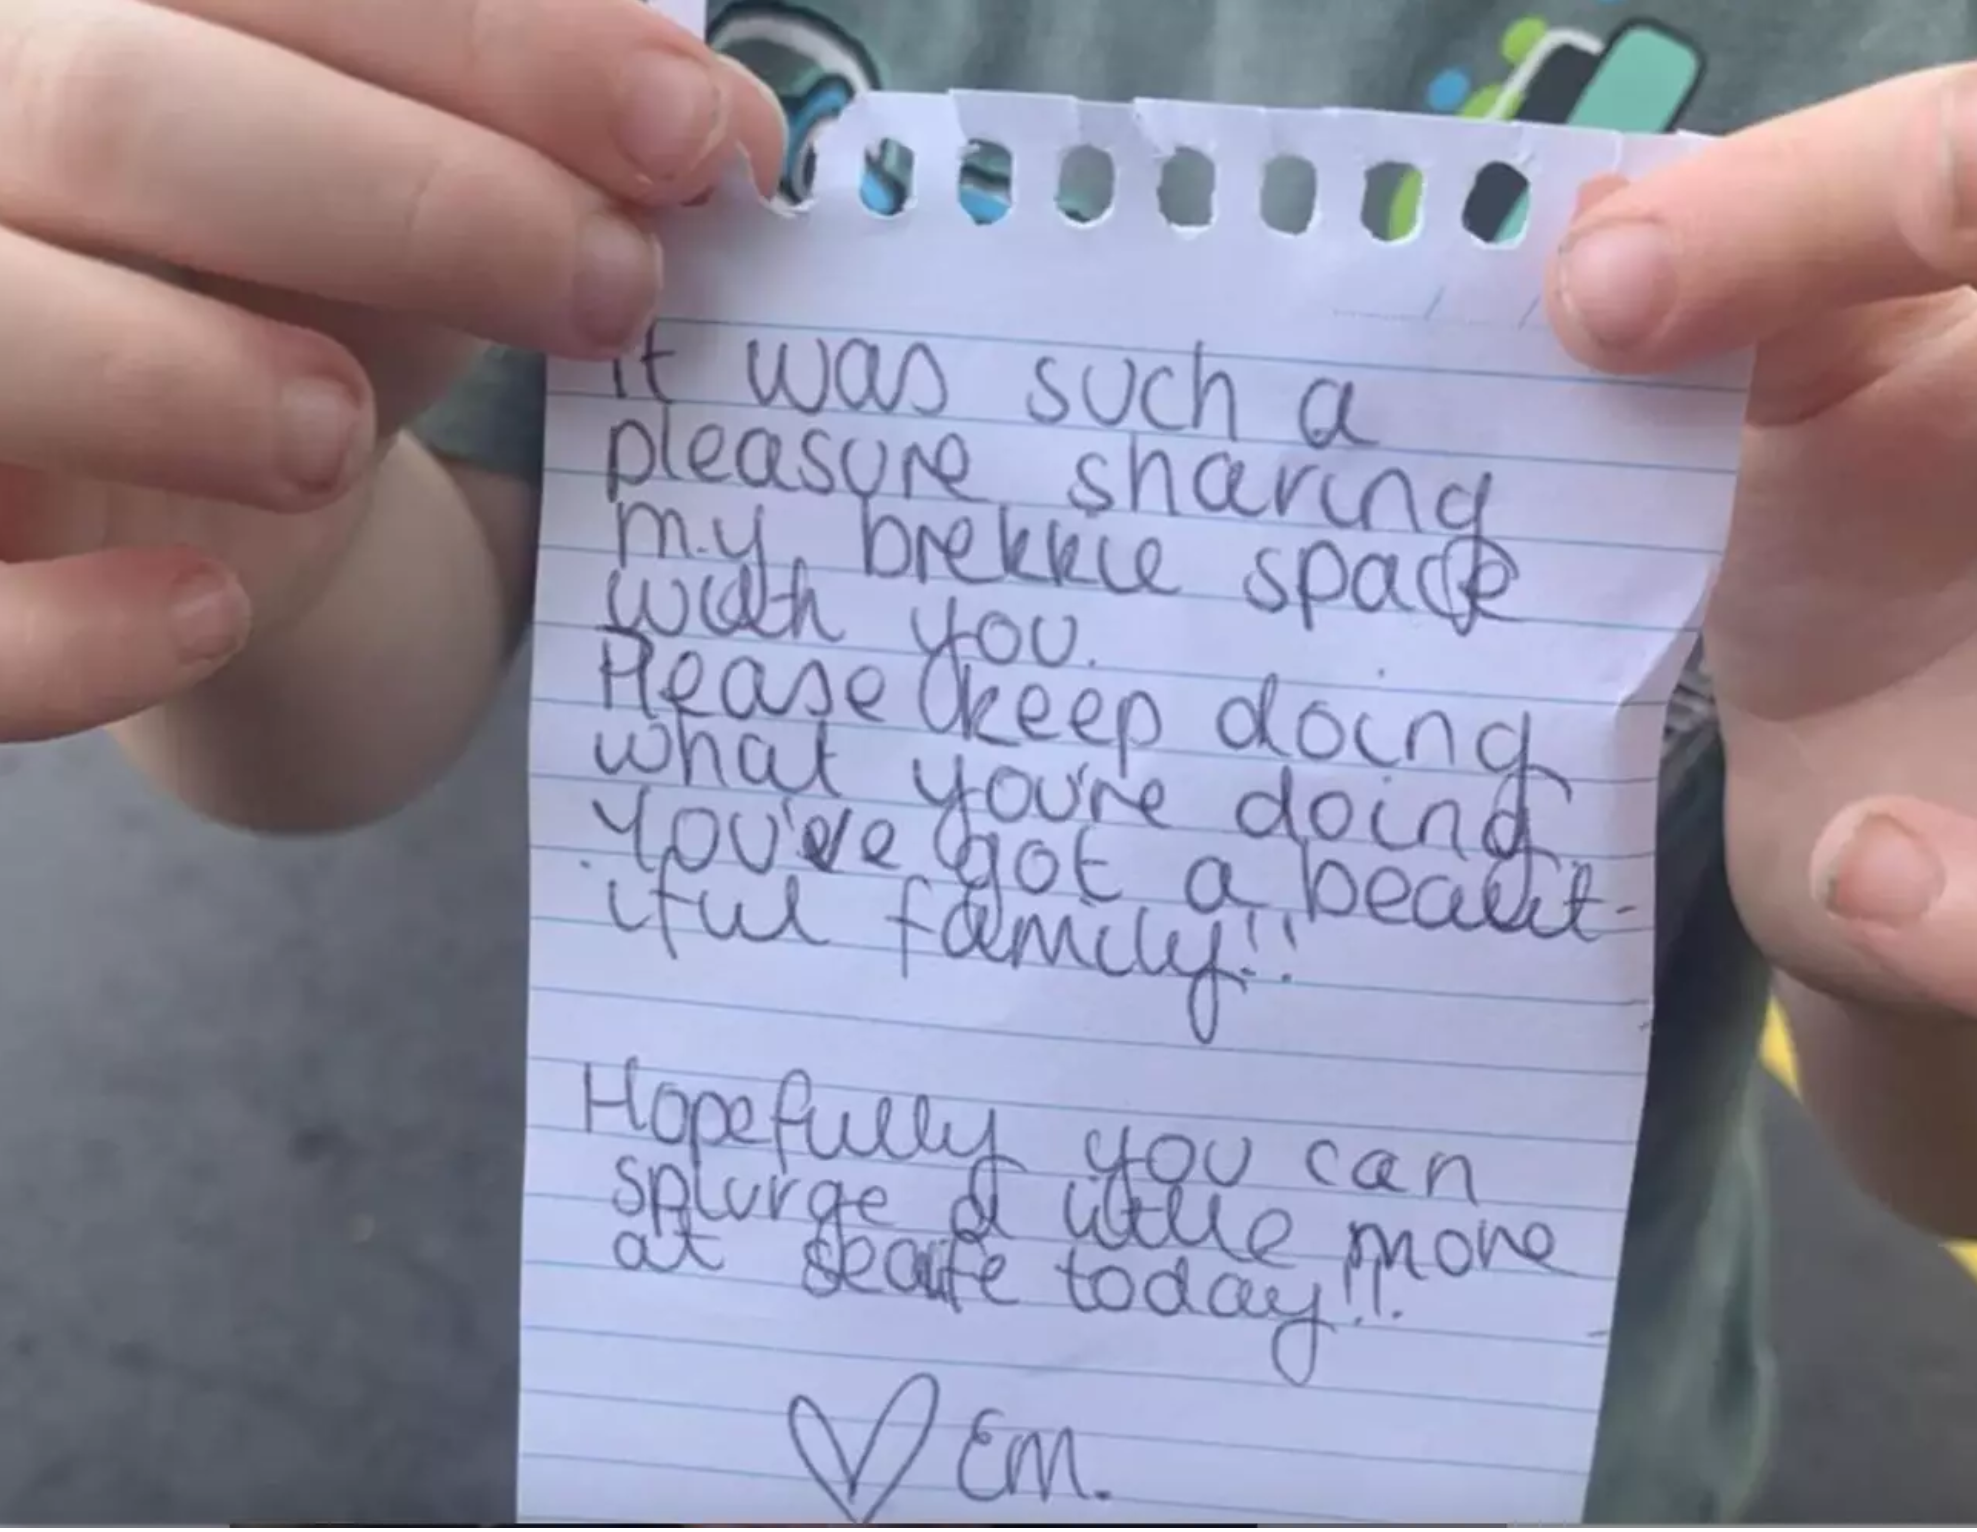 It was such a
pleasure sharing
my brekkie space
with you.
Please keep doing
what you're doing
You've got a beaut-
iful family!!
Hopefully you can
splurge a little more
at skate today!!
Em.